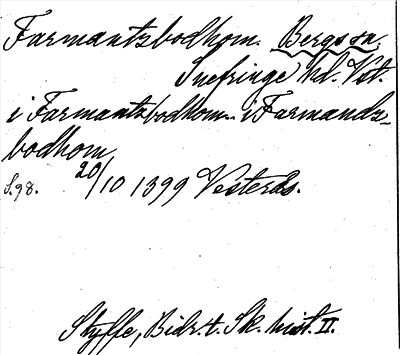 Farmantzbodhom. Bergs sn.
Snefringe hd. Vst.
i Farmantzbodhom.. i Farmandz-
bodhom
S. 98. 20/10 1399 Vesterås.
Styffe, Bidr. t. Sk. hist. II.